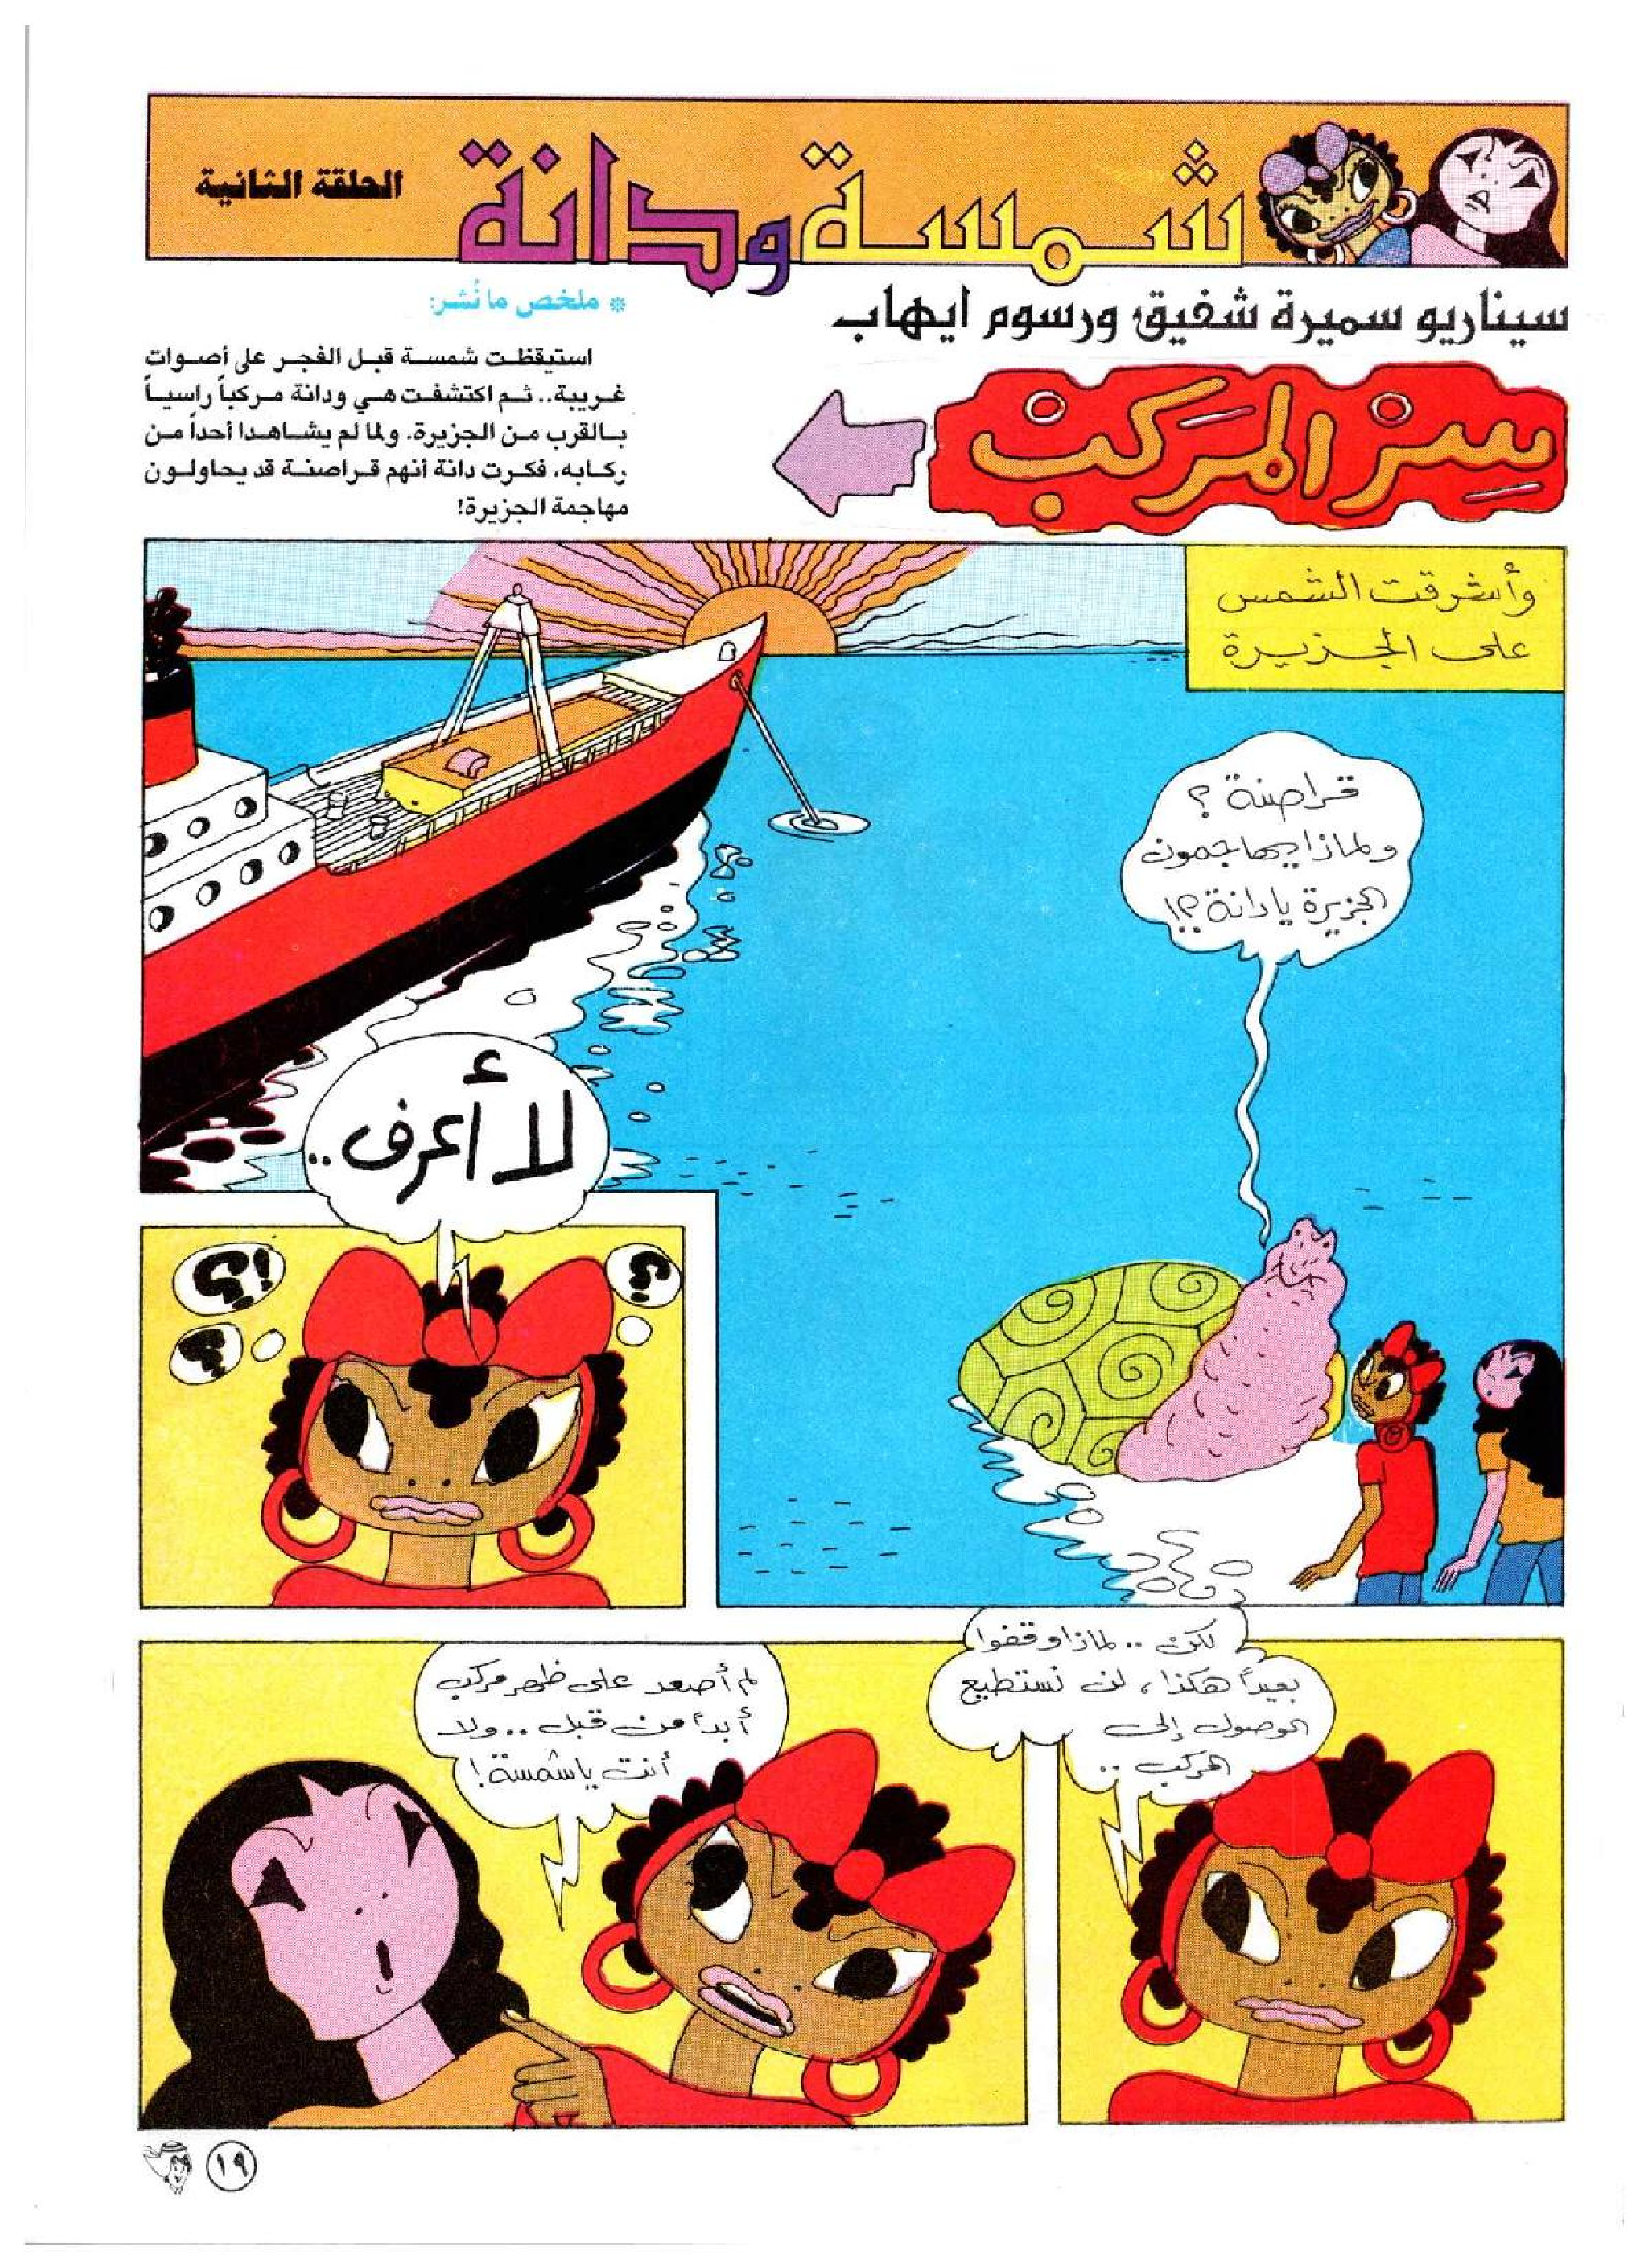 شمسة ودانة
الحلقة الثانية
سيناريو سميرة شفيق ورسوم ايهاب
سِرّ المَركَب
* ملخص ما نُشر:
استيقظت شمسة قبل الفجر على أصوات
غريبة.. ثم اكتشفت هي ودانة مركباً راسياً
بالقرب من الجزيرة. ولما لم يشاهدا أحداً من
ركابه، فكرت دانة أنهم قراصنة قد يحاولون
مهاجمة الجزيرة!
وأشرقت الشمس
على الجزيرة
قراصنة ؟
ولماذا يهاجمون
الجزيرة يا دانة ؟!
لا أعرف..
؟
؟!
؟
لكن .. لماذا وقفوا
بعيداً هكذا ، لن نستطيع
الوصول إلى
المركب ..
لم أصعد على ظهر مركب
أبداً من قبل .. ولا
أنت يا شمسة !
١٩